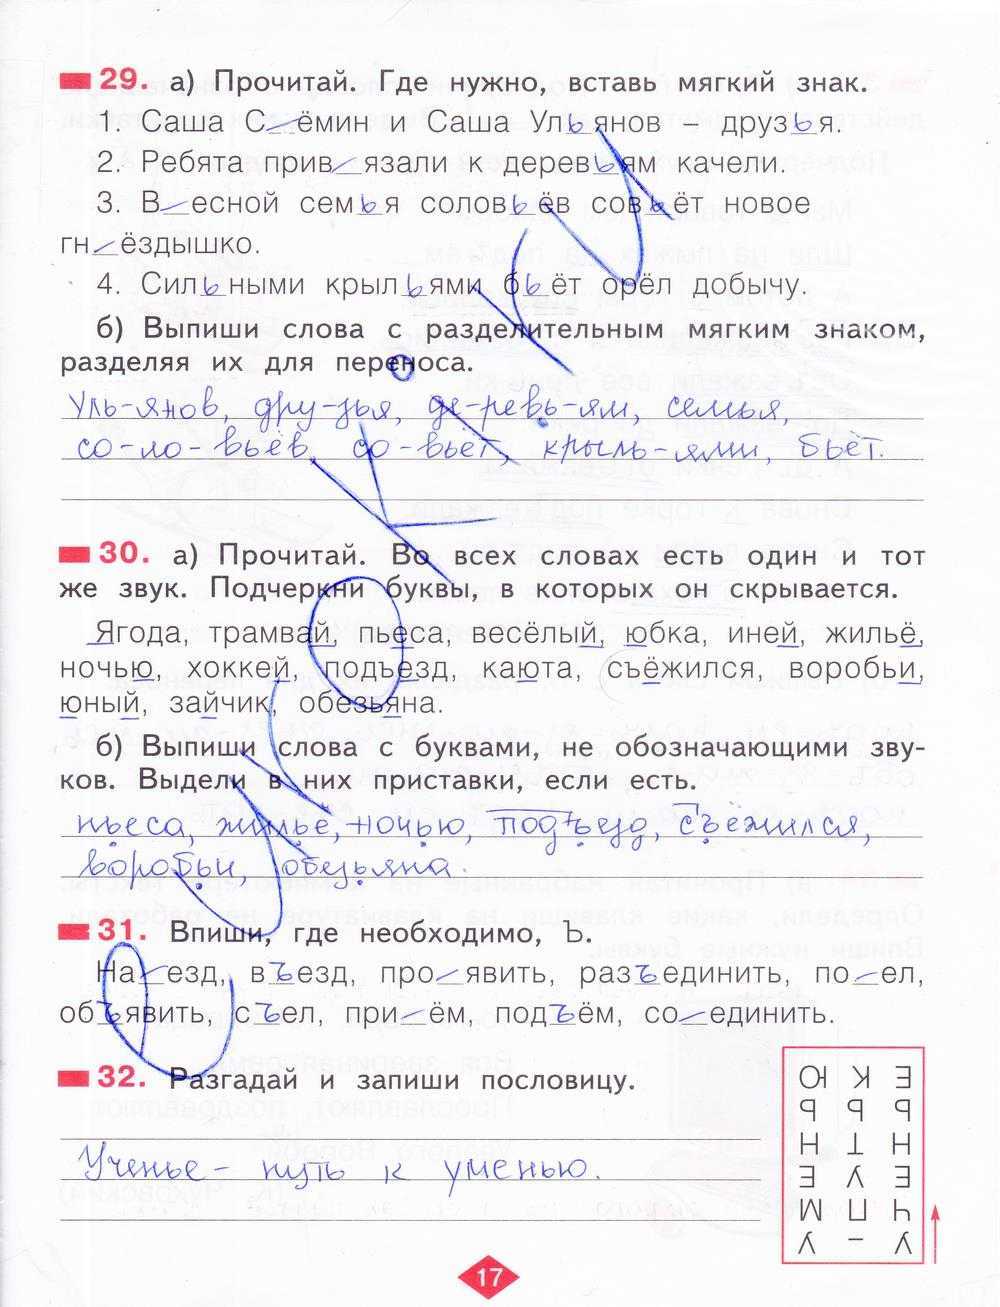 29. а) Прочитай. Где нужно, вставь мягкий знак.
1. Саша С_ёмин и Саша Ульянов – друзья.
2. Ребята прив_язали к деревьям качели.
3. В_есной семья соловьёв совьёт новое
гн_ёздышко.
4. Сильными крыльями бьёт орёл добычу.
б) Выпиши слова с разделительным мягким знаком,
разделяя их для переноса.
Уль-янов, дру-зья, де-ревь-ям, семья,
со-ло-вьёв, со-вьёт, крыль-ями, бьёт.
30. а) Прочитай. Во всех словах есть один и тот
же звук. Подчеркни буквы, в которых он скрывается.
Ягода, трамвай, пьеса, весёлый, юбка, иней, жильё,
ночью, хоккей, подъезд, каюта, съёжился, воробьи,
юный, зайчик, обезьяна.
б) Выпиши слова с буквами, не обозначающими зву-
ков. Выдели в них приставки, если есть.
пьеса, жильё, ночью, подъезд, съёжился,
воробьи, обезьяна.
31. Впиши, где необходимо, Ъ.
На_езд, въезд, про_явить, разъединить, по_ел,
объявить, съел, при_ём, подъём, со_единить.
32. Разгадай и запиши пословицу.
Ученье – путь к уменью.
Ю К Е
Ь Ь Ь
Н Т Н
Е У Е
М П Ч
У – У
17
Reshak.ru